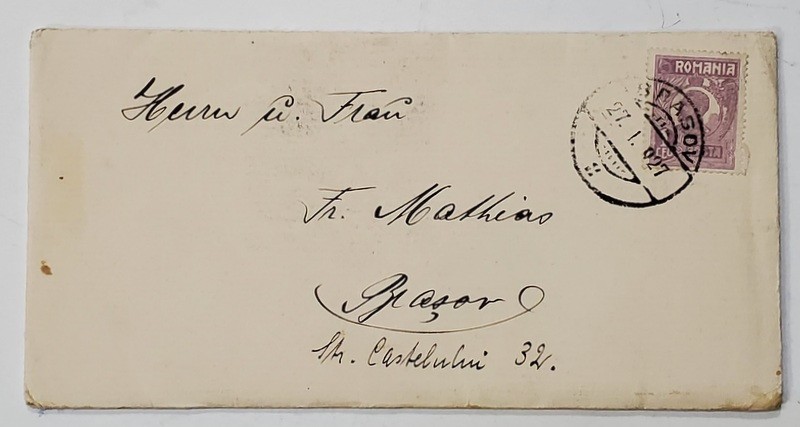 ROMANIA
BRASOV
27. I. 927
Herrn u. Frau
Fr. Mathias
Brașov
Str. Castelului 32.